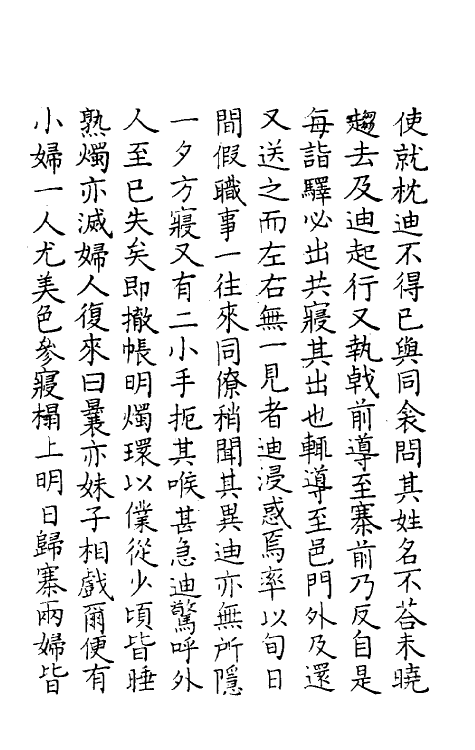 使就枕迪不得已與同衾問其姓名不荅未曉
趨去及迪起行又執戟前導至寨前乃反自是
每詣驛必出共寢其出也輒導至邑門外及還
又送之而左右無一見者迪浸惑焉率以旬日
間假職事一往來同僚稍聞其異迪亦無所隱
一夕方寢又有二小手扼其喉甚急迪驚呼外
人至已失矣即撤帳明燭環以僕從少頃皆睡
熟燭亦滅婦人復來曰曩亦妹子相戲爾便有
小婦一人尤美色參寢榻上明日歸寨兩婦皆